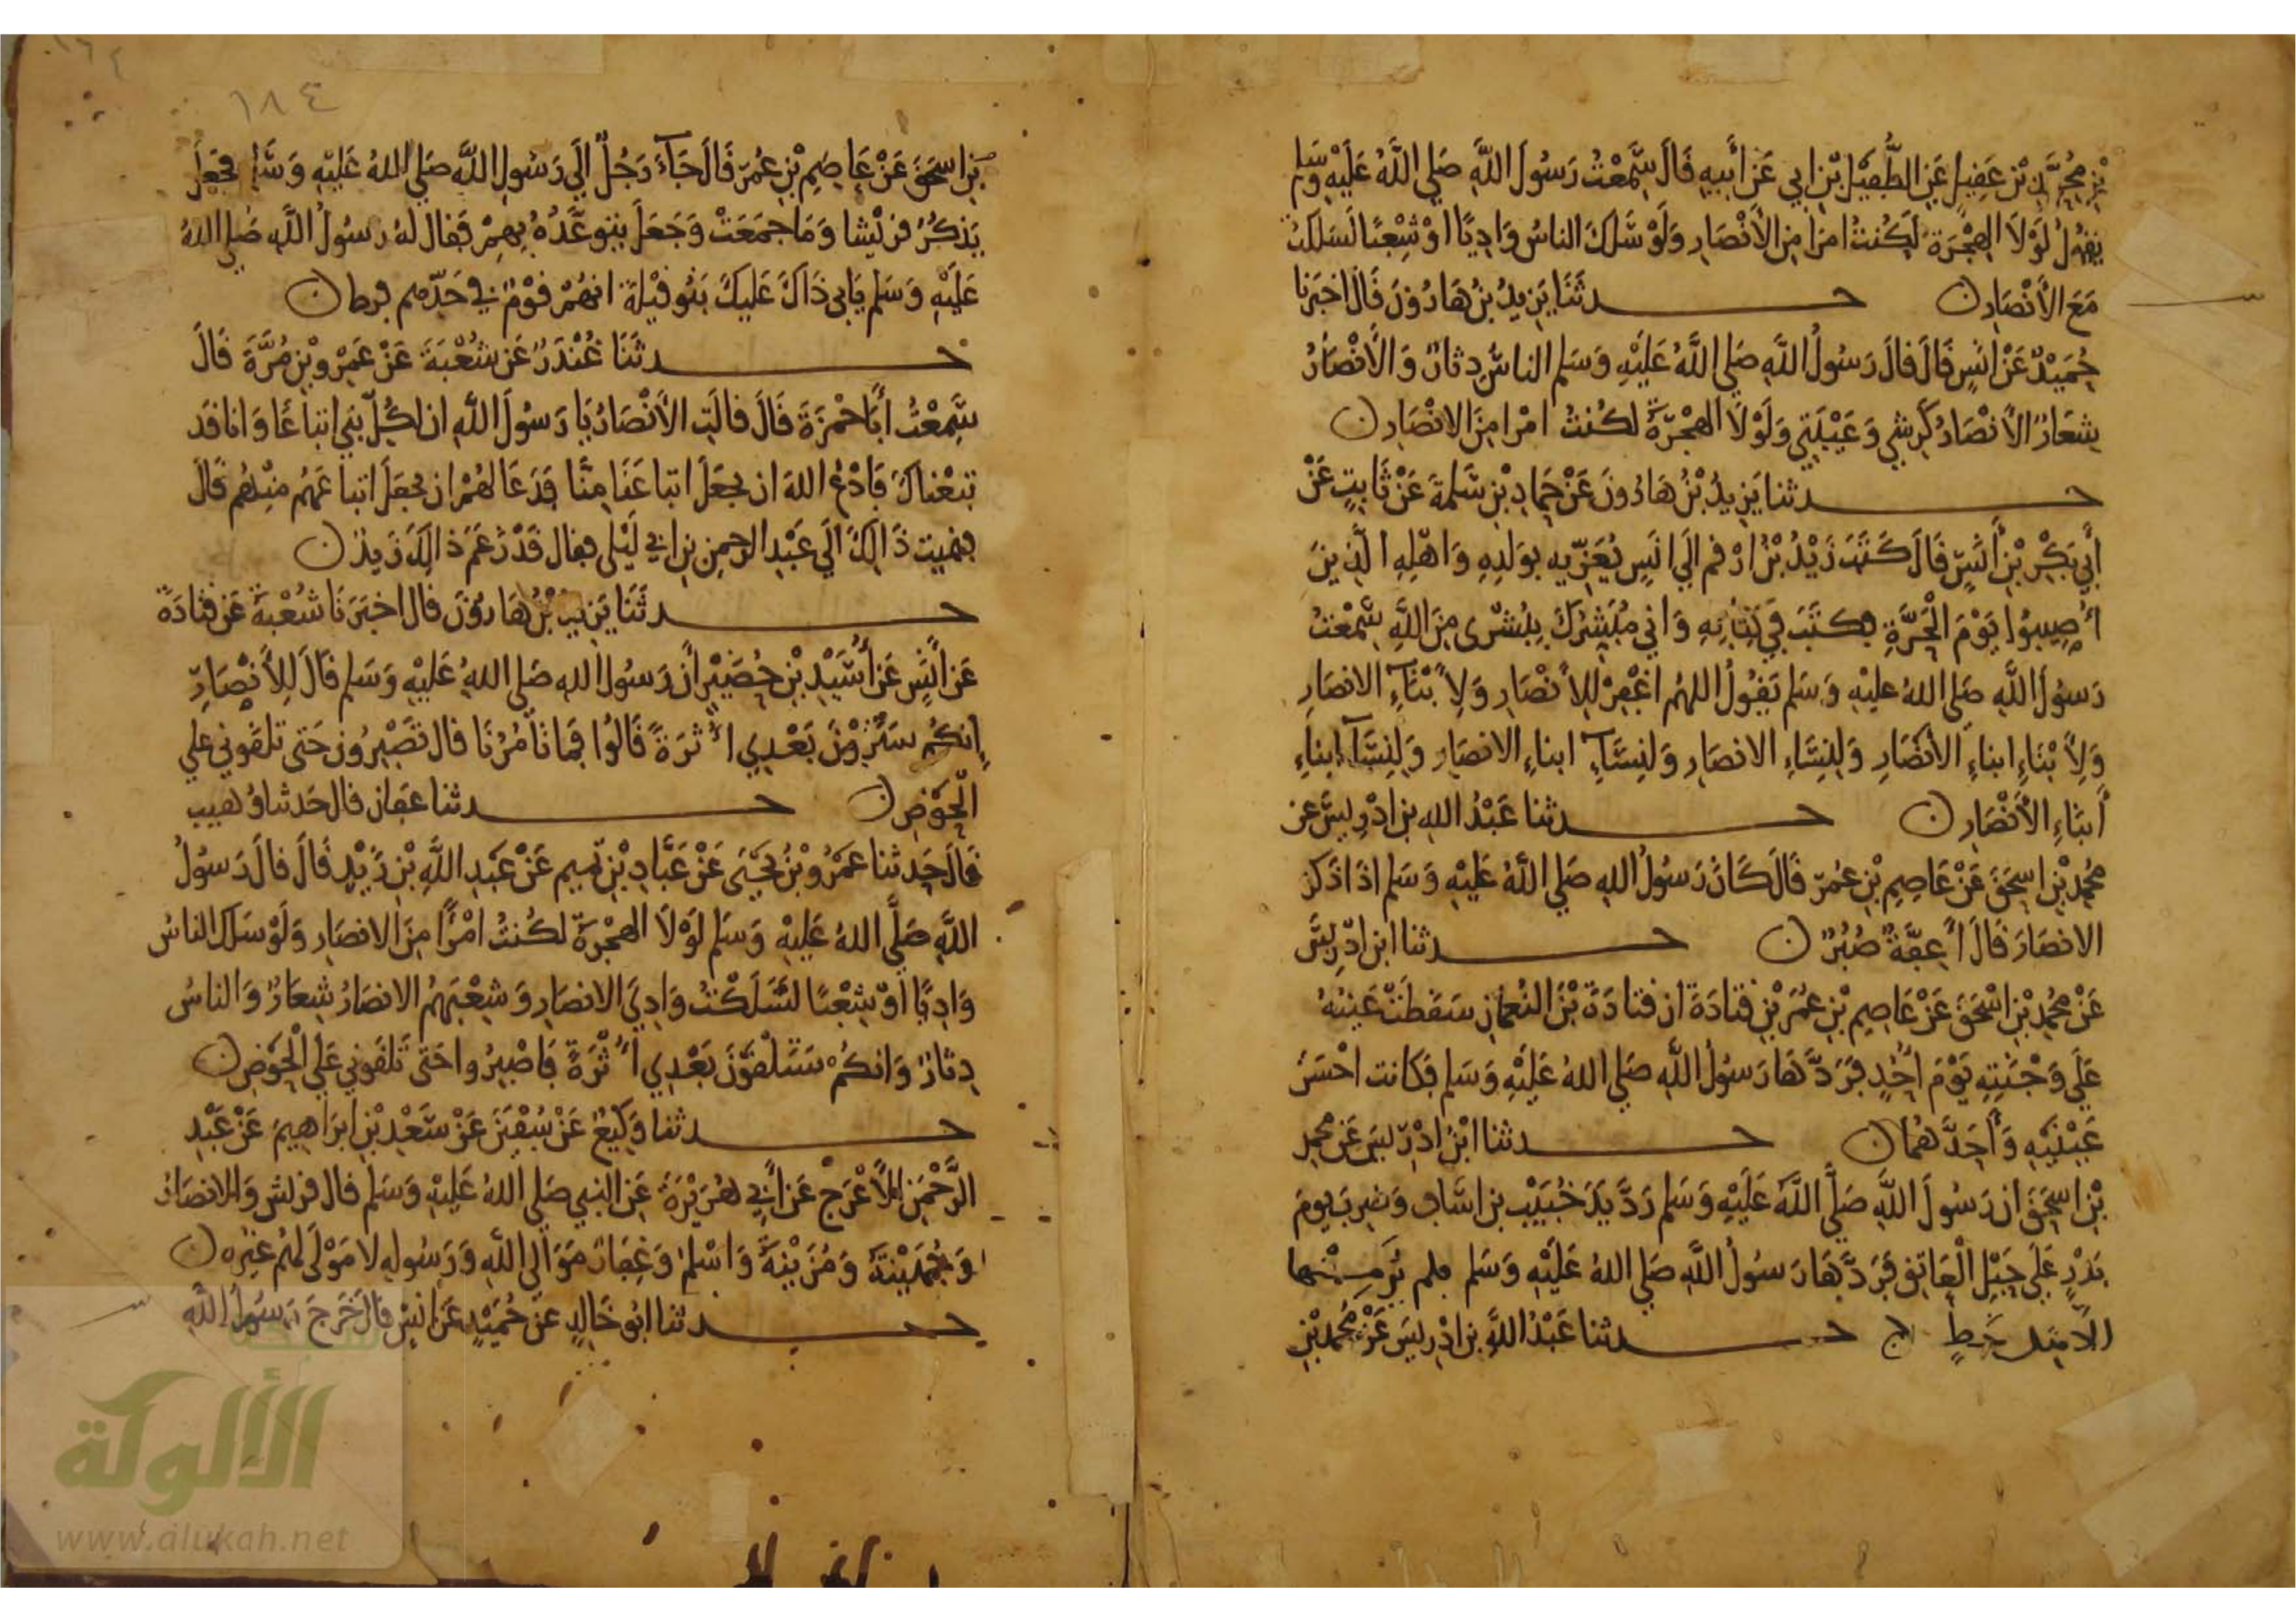 بْنِ مُحَمَّدِ بْنِ عَقِيلٍ عَنِ الطُّفَيْلِ بْنِ ابي عَنْ أَبِيهِ قَالَ سَمِعْتُ رَسُولَ اللَّهِ صَلي اللَّهُ عَلَيْهِ وَسَلم
يَقُولُ لَوْلَا الهِجْرَة لَكُنتُ امرا مِنَ الأَنْصَارِ وَلَوْ سَلَكَ الناسُ وَادِيًا اوْ شِعْبًا لَسَلَكتُ
مَعَ الأَنْصَارِ حدثَنَا يَزِيدُ بنُ هَارُونَ قَالَ اخبَرَنا
حُمَيْدٌ عَنْ انَسٍ قَالَ قالَ رَسُولُ اللَّهِ صَلي اللَّهُ عَلَيْهِ وَسَلم الناسُ دِثارٌ وَالأَنْصَارُ
شِعَارٌ الأَنْصَارُ كَرِشي وَعَيْبَتِي وَلَوْلَا الهِجْرَةُ لكُنتُ امْرا مِنَ الانْصَارِ
حدثنا يَزِيدُ بْنُ هَارُونَ عَنْ حَمادِ بْنِ سَلَمةَ عَنْ ثَابِتٍ عَنْ
أَبِي بَكْرِ بْنِ أَنَسٍ قَالَ كَتَبَ زَيْدُ بْنُ ارْقم الَي انَسٍ يُعَزِّيهِ بوَلَدِهِ وَاهْلِهِ الَّذِينَ
أُصِيبُوا يَوْمَ الْحَرَّةِ فكتَبَ فِي كِتَابِهِ وَاني مُبَشِّرُكَ بِبُشْرَى مِنَ اللَّهِ سَمِعْتُ
رَسُولَ اللَّهِ صَلي اللهُ عليْهِ وَسَلم يَقُولُ اللهُم اغْفِرْ لِلأَنْصَارِ وَلأَبْنَاءِ الانصَارِ
وَلأَبْنَاءِ ابناءِ الأَنْصَارِ وَلِنِسَاءِ الانصَارِ وَلنِسَاءِ ابناءِ الانصَارِ وَلِنِسَاءِ ابناءِ
أَبنَاءِ الأَنْصَارِ حدثنا عَبْدُ اللهِ بن ادْرِيسَ عن
مُحمدِ بْنِ اسحَقَ عَنْ عَاصِمِ بْنِ عُمَرَ قَالَ كَانَ رَسُولُ اللهِ صَلي اللَّهُ عَلَيْهِ وَسَلم اذَا ذكرَ
الانصَارَ قَالَ أَعِفَّةٌ صُبُرٌ حدثنا ابن ادْرِيسَ
عَنْ مُحَمدِ بْنِ اسْحَقَ عَنْ عَاصِمِ بْنِ عُمَرَ بْنِ قتادَةَ ان قتادَةَ بْنَ النُّعْمَانِ سَقَطَتْ عَيْنُهُ
عَلَي وَجْنَتِهِ يَوْمَ أُحُدٍ فَرَدَّهَا رَسُولُ اللَّهِ صَلي اللهُ عَلَيْهِ وَسَلم فكَانت احْسَنَ
عَيْنَيْهِ وَأَحَدَّهُمَا حدثنا ابْنُ ادْرِيسَ عَنْ محمدِ
بْنِ اسحَقَ ان رَسُولَ اللَّهِ صَلَّي اللَّهُ عَلَيْهِ وَسَلم رَدَّ يَدَ خُبَيْبِ بن اسَاف وَضُرِبَ يومَ
بَدْرٍ عَلَي حَبْلِ الْعَاتِقِ فَرَدَّهَا رَسُولُ اللَّهِ صَلي اللهُ عَلَيْهِ وَسَلم فلم يُرَ مِنْها
الا مثل خَطٍ ج حدثنا عَبْدُ اللَّهِ بن ادْرِيسَ عَنْ مُحمدِ بْنِ
١٨٤
بن اسحَقَ عَنْ عَاصِمِ بْنِ عُمَرَ قَالَ جَاءَ رَجُلٌ الَي رَسُولِ اللَّهِ صَلي اللهُ عَلَيْهِ وَسَلم فجَعَلَ
يَذكُرُ قرَيْشا وَمَا جمَعَتْ وَجَعَلَ يتوَعَّدُهُ بِهِمْ فَقال لهُ رسُولُ اللَّهِ صَلي اللهُ
عَلَيْهِ وَسَلم يَابي ذَاكَ عَلَيكَ بَنُو قيْلَة انهُمْ قوْمٌ في حَدّهم فرط
حدثَنَا غُنْدَرٌ عَن شُعْبَةَ عَنْ عَمْرِو بْنِ مُرَّةَ قَالَ
سَمِعْتُ أَبَا حَمْزَةَ قَالَ قالَتِ الأَنْصَارُ يَا رَسُولَ اللَّهِ ان لِكُلّ نَبي اتباعًا وَانا قد
تبعْناكَ فَادْعُ اللهَ ان يجعَلَ اتباعَنَا مِنَّا فدَعَا لهُمْ ان يجعَلَ اتباعَهُم مِنْهُم قَالَ
فنميت ذَالِكَ الَي عَبْدِ الرحمنِ بن ابي لَيْلَى فقال قَدْ زَعَمَ ذَالِكَ زَيدٌ
حدثَنَا يَزِيدُ بْنُ هَارُونَ قال اخبَرَنَا شُعْبَةُ عَن قتادَةَ
عَن أَنَسٍ عَن أُسَيْدِ بْنِ حُضَيْرٍ أَن رَسُولَ اللهِ صَلي اللهُ عَلَيْهِ وَسَلم قَالَ لِلأَنْصَارِ
إِنكُم سَتَرَوْنَ بَعْدِي أُثرَةً قَالُوا فمَا تَأْمُرُنَا قال تصْبِرُون حَتى تلقوْني علي
الْحَوْضِ حدثنا عفان قال حَدثنا وُهَيب
قَالَ حَدثنا عَمْرُو بْنُ يَحْيَى عَنْ عَبَّادِ بْنِ تَمِيمٍ عَنْ عَبْدِ اللَّهِ بْنِ زَيْدٍ قَالَ قالَ رَسُولُ
اللَّهِ صَلَّي اللهُ عَلَيْهِ وَسَلم لَوْلَا الهِجْرَةُ لكُنتُ امْرأً مِنَ الانصَارِ وَلَوْ سَلَكَ الناسُ
وَادِيًا اوْ شِعْبًا لسَلَكْتُ وَادِيَ الانصَارِ وَشِعْبَهُمُ الانصَارُ شِعَارٌ وَالناسُ
دِثارٌ وَانكُمْ سَتَلْقَوْنَ بَعْدِي أُثْرَةً فاصْبِرُوا حَتى تَلقَوني عَلَي الْحَوْضِ
حدثنا وَكِيعٌ عَنْ سُفْيَنَ عَنْ سَعْدِ بْنِ ابرَاهِيمَ عَنْ عَبْدِ
الرَّحْمَنِ الأَعْرَجِ عَن أَبِي هُرَيْرَةَ عَنِ النبي صَلي اللهُ عَلَيْهِ وَسَلم قال قريش وَالانصَارُ
وَجُهَيْنَةُ وَمُزَيْنَةُ وَاسْلمُ وَغِفَارٌ مَوَالِي اللَّهِ وَرَسُولهِ لا مَوْلَى لهُمْ غيْرُه
حدثنا ابُو خَالِدٍ عَن حُمَيْدٍ عَن انَسٍ قالَ خَرَجَ رَسُولُ اللَّهِ
الألوكة
www.alukah.net